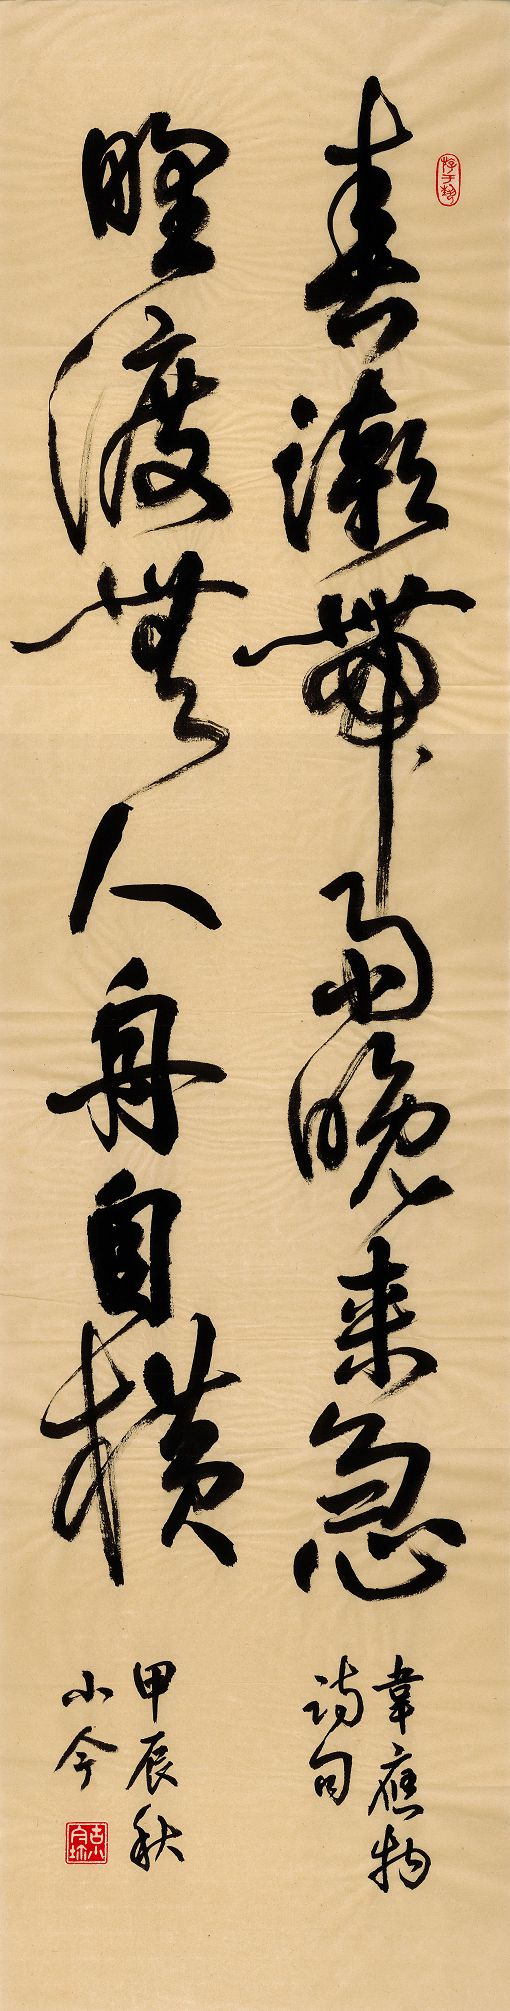 春潮帶雨晚来急
野渡無人舟自横
韋應物
詩句
甲辰秋
小今